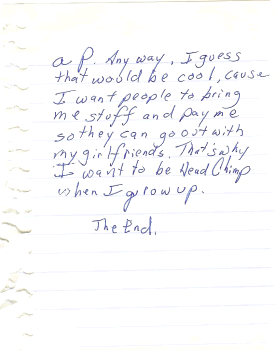 a P. Any way, I guess
that would be cool, cause
I want people to bring
me stuff and pay me
so they can go out with
my girlfriends. That's why
I want to be Head Chimp
when I grow up.
The End.